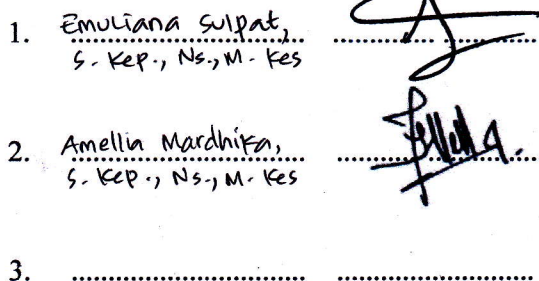 1. Emuliana Sulpat,
S. Kep., Ns., M. Kes
2. Amellia Mardhika,
S. Kep., Ns., M. Kes
3.